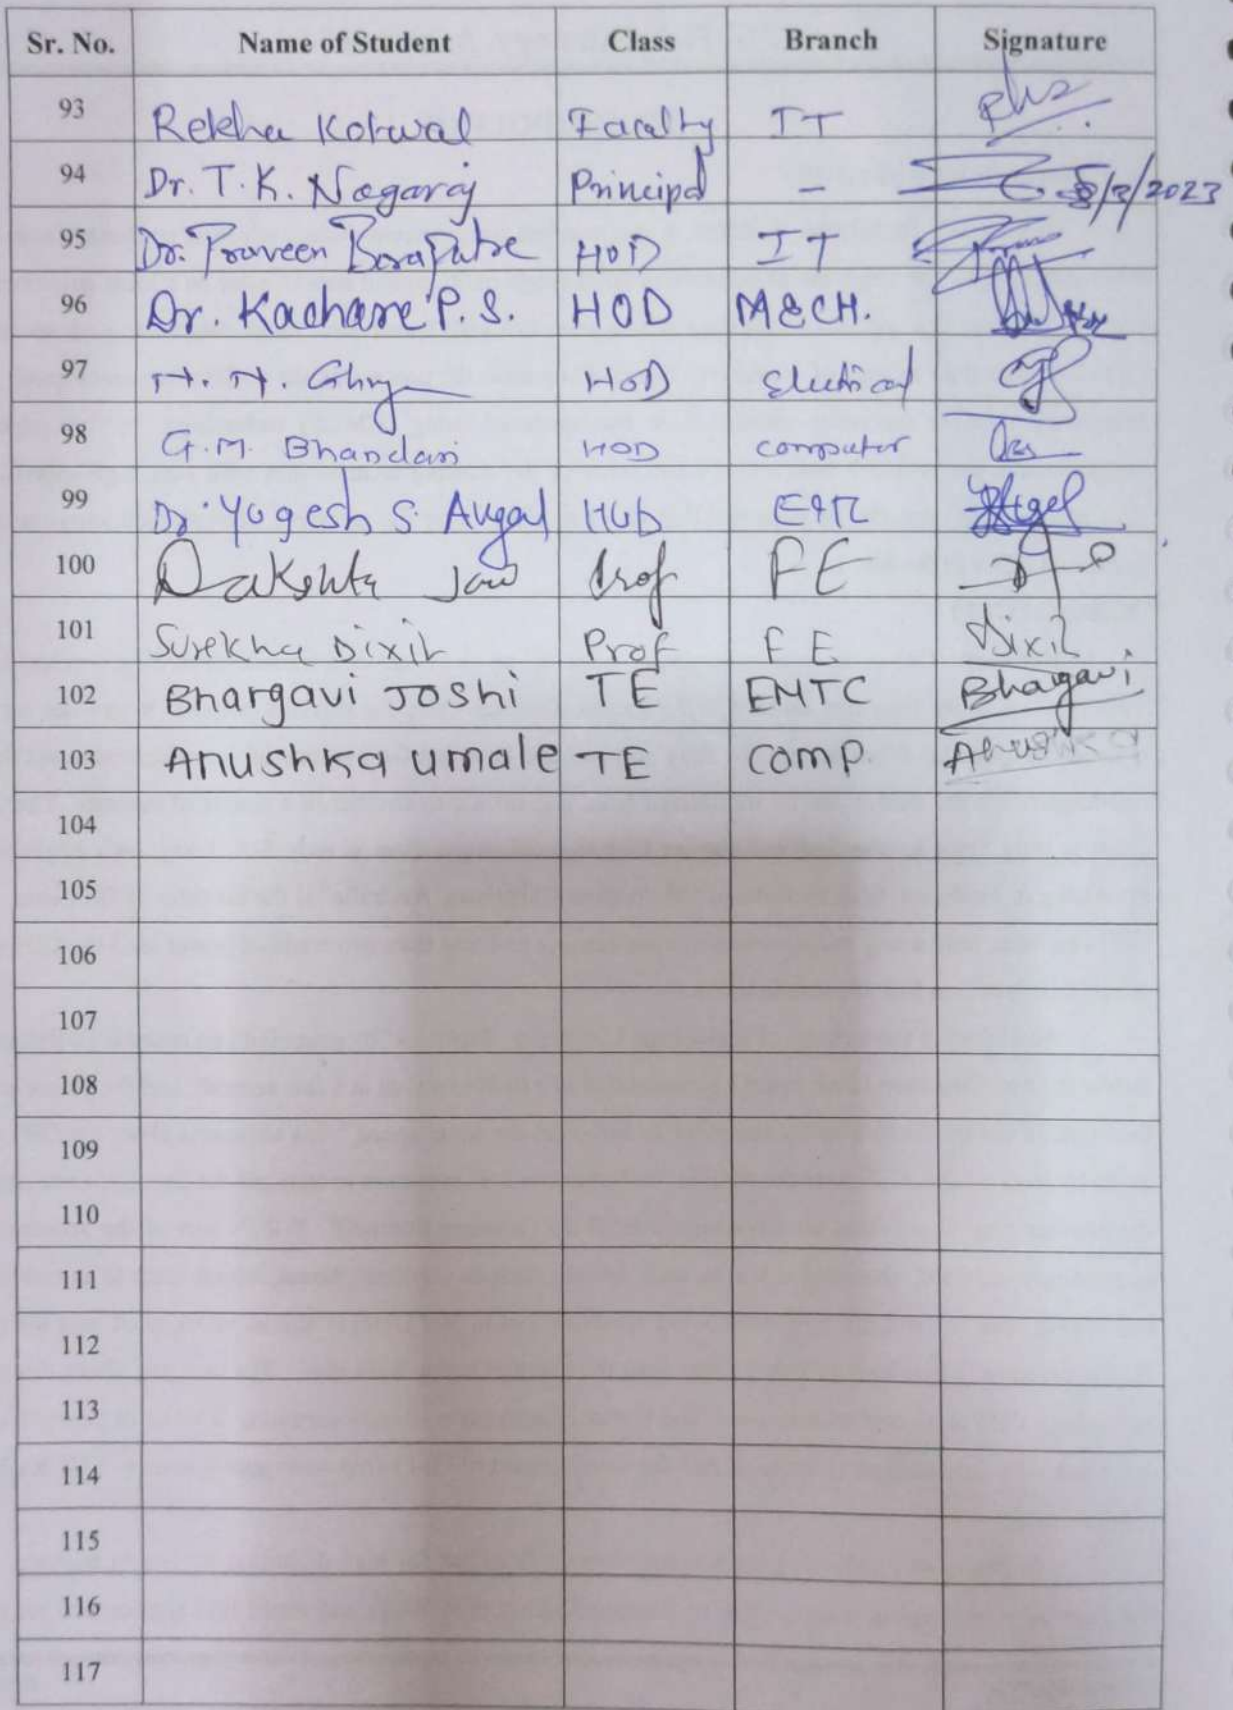 Sr. No. Name of Student Class Branch Signature
93 Rekha Kotwal Faculty IT
94 Dr. T. K. Nagaraj Principal - 8/3/2023
95 Dr. Praveen HOD IT
96 Dr. Kachare P. S. HOD MECH.
97 HOD Electrical
98 G.M. Bhandari HOD computer
99 Dr. Yogesh S. Angal HOD
100 Prof FE
101 Surekha Dixit Prof FE Dixit
102 Bhargavi Joshi TE ENTC Bhagavi
103 Anushka umale TE comp Anushka
104
105
106
107
108
109
110
111
112
113
114
115
116
117